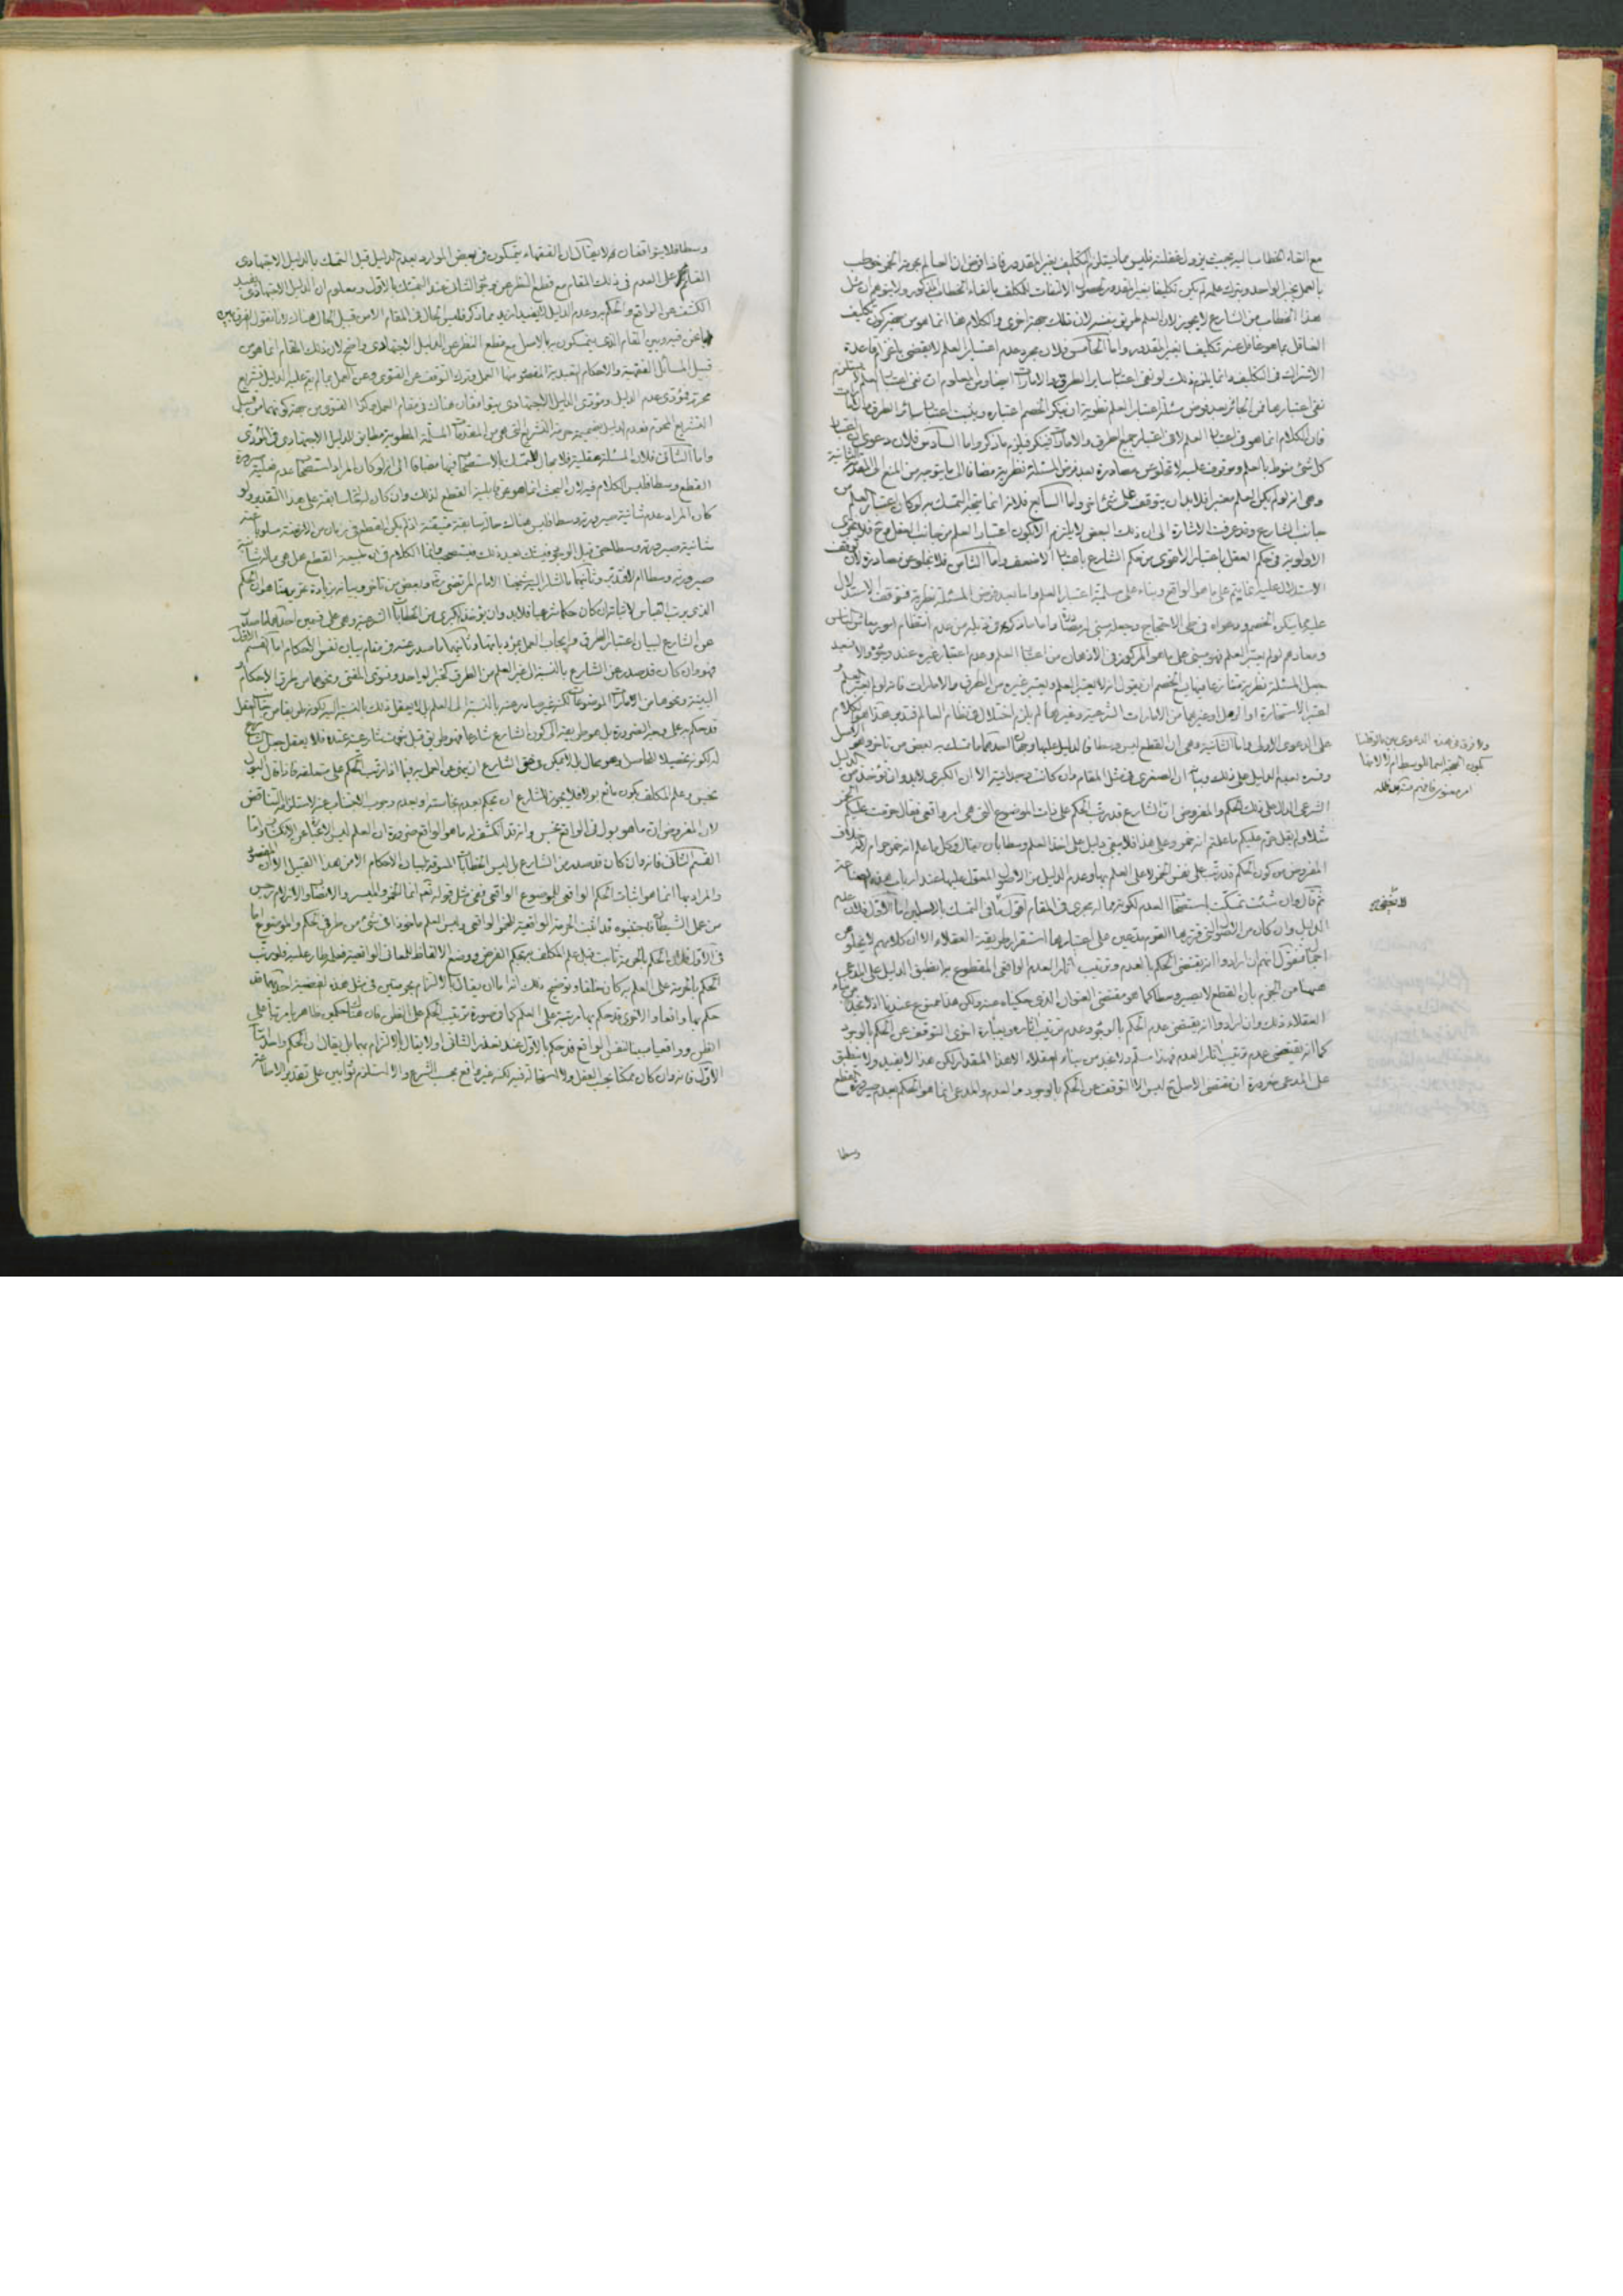 مع القاء الخطاب اليه بحيث يزول غفلته فليس مما يستلزم التكليف بغير المقدور فاذا فرض ان العالم بحرمة الخمر خوطب
بالعمل بخبر الواحد وبترك علمه لم يكن تكليفا بغير المقدور الالتفات للمكلف بالقاء الخطاب المذكور ولا يتوهم ان مثل
هذا الخطاب من الشارع لا يجوز لان العلم طريق بنفسه لان ذلك جهة اخرى والكلام هنا انما هو من جهة كون تكليف
الغافل بما هو غافل عنه تكليفا بغير المقدور واما الخامس فلان مجرد عدم اعتبار العلم لا يقضى بانتفاء قاعدة
الاشتراك في التكليف وانما يلزم ذلك لو نفى اعتبار ساير الطرق والامارات ايضا ومن المعلوم ان نفى اعتبار العلم
نفى اعتبارها فمن الجائز بعد فرض مسئلة اعتبار العلم نظرية ان ينكر الخصم اعتباره ويثبت اعتبار سائر الطرق
فان الكلام انما هو في اعتبار العلم لا في اعتبار جميع الطرق والامارات فيلزم ما ذكر واما السادس فلان دعوى
كل شئ منوط بالعلم وموقوف عليه لا تخلو عن مصادرة بعد فرض المسئلة نظرية مضافا الى ما يتوجه من المنع الى
وهى انه لو لم يكن العلم معتبرا فلا بد ان يتوقف على شئ اخر واما السابع فلانه انما يتجه التمسك به لو كان اعتبار العلم من
جانب الشارع وقد عرفت الاشارة الى ان ذلك البعض لا يلتزم الا بكون اعتبار العلم من جانب العقل
الاولوية في حكم العقل باعتبار الاقوى من حكم الشارع باعتبار الاضعف واما الثامن فلا يخلو عن مصادرة لان
الاستدلال عليه انما يتم على ما هو الواقع وبناء على مسلمية اعتبار العلم واما بعد فرض المسئلة نظرية فتوقف الاستدلال
عليه مما ينكره الخصم ودعواه في طى الاحتجاج وجعله مبنى له مصادرة واما ما ذكره في ذيله من عدم انتظام امور معاش الناس
ومعادهم لو لم يعتبر العلم فهو مبنى على ما هو المركوز في الاذهان من اعتبار العلم وعدم اعتبار غيره عند وجوده والا فبعد
جعل المسئلة نظرية متنازعا فيها يصح للخصم ان يقول انه لا يعتبر العلم ويعتبر غيره من الطرق والامارات فانه لو لم يعتبر العلم و
اعتبر الاستخارة او الرمل او غيرهما من الامارات الشرعية وغيرها لم يلزم اختلال في نظام العالم فتدبر هذا هو الكلام
على الدعوى الاولى واما الثانية وهى ان القطع ليس وسطا فالدليل عليها وجهان احدهما ما تمسك به بعض من تاخر وهو
وقد تعميم الدليل على ذلك وبيانه ان الصغرى في مثل المقام وان كانت وجدانية الا ان الكبرى لا بد وان تؤخذ من
الشرعى الدال على ذلك الحكم والمفروض ان الشارع قد رتب الحكم على ذات الموضوع التى هى امر واقعى فقال حرمت عليكم
مثلا ولم يقل حرم عليكم ما علم انه خمر وعلى هذا فلا يبقى دليل على اخذ العلم وسطا بان يقال وكل ما علم انه خمر حرام لانه خلاف
المفروض من كون الحكم قد رتب على نفس الخمر لا على العلم بها وعدم الدليل من الاصول المعول عليها عند ارباب
ثم قال وان شئت تمسكت باستصحاب العدم لكونه مما له مجرى في المقام اقول في التمسك بالاصلين اما الاول فلان عدم
الدليل وان كان من الاصول التى قررها القوم مدعين على اعتبارها استقرار طريقة العقلاء الا ان كلامهم لا يخلو من
اجمال فنقول انهم ان ارادوا انه يقتضى الحكم بالعدم وترتيب آثار العدم الواقعى المقطوع به انطبق الدليل على المدعى
ههنا من الجزم بان القطع لا يصير وسطا كما هو مقتضى العنوان الذى حكيناه عنه ولكن هذا ممنوع عندنا اذ لا نجد من بناء
العقلاء ذلك وان ارادوا انه يقتضى عدم الحكم بالوجود وعدم ترتيب آثاره وبعبارة اخرى التوقف عن الحكم بالوجود
كما انه يقتضى عدم ترتيب آثار العدم فهذا مسلم ولا نجد من بناء العقلاء الا هذا المقدار لكن هذا لا يفيد ولا ينطبق
على المدعى ضرورة ان مقتضى الاصل ح ليس الا التوقف عن الحكم بالوجود والعدم والمدعى انما هو الحكم بعدم صيرورة القطع
وسطا
ولا فرق في هذه الدعوى بين ما لو قلنا
بكون الحجة اسما للوسط ام لا لانها
امر معنوى فافهم منه مد ظله
وسطا فلا يتوافقان ثم لا يقال ان الفقهاء يتمسكون في بعض الموارد بعدم الدليل قبل التمسك بالدليل الاجتهادى
القائم على العدم في ذلك المقام مع قطع النظر عن وجود الثانى عند التمسك بالاول ومعلوم ان الدليل الاجتهادى يفيد
الكشف عن الواقع والحكم به وعدم الدليل لا يفيد ازيد مما ذكر فليس الحال في المقام الا من قبيل الحال هناك لانا نقول الفرق بين
ما نحن فيه وبين المقام الذى يتمسكون به بالاصل مع قطع النظر عن الدليل الاجتهادى واضح لان ذلك المقام انما هو من
قبيل المسائل الفقهية والاحكام التعبدية المقصود منها العمل وترك التوقف عن الفتوى وعن العمل بما لم يقم عليه الدليل
محرم فمؤدى عدم الدليل ومؤدى الدليل الاجتهادى يتوافقان هناك في مقام العمل وكذا الفتوى من جهة كونها من قبيل
التشريع المحرم فعدم الدليل بضميمة حرمة التشريع التى هى من المقدمات المسلمة المطوية مطابق للدليل الاجتهادى في المؤدى
واما الثانى فلان المسئلة عقلية فلا مجال للتمسك بالاستصحاب فيها مضافا الى انه لو كان المراد استصحاب عدم
القطع وسطا فليس الكلام فيه لان البحث انما هو عن قابلية القطع لذلك وان كان له حالة سابقة على هذا التقدير ولو
كان المراد عدم شانية صيرورته وسطا فليس هناك حالة سابقة متيقنة اذ لم يكن القطع في زمان من الازمنة مسلوبا عنه
شانية صيرورته وسطا حتى قبل الوجود فيشك بعد ذلك فيستصحب وانما الكلام في ان طبيعة القطع هل هى مما له شانية
صيرورته وسطا ام لا فتدبر وثانيهما ما اشار اليه شيخنا الامام المرتضى ره وبعض من تاخر وبيانه بزيادة تحرير منا هو ان الحكم
الذى يرتب القياس لاثباته ان كان حكما شرعيا فلا بد وان يؤخذ الكبرى من الخطابات الشرعية وهى على قسمين احدهما ما صدر
من الشارع لبيان اعتبار الطرق وايجاب العمل بمؤدياتها وثانيهما ما صدر عنه في مقام بيان نفس الاحكام اما القسم الاول
فهو وان كان قد صدر من الشارع بالنسبة الى غير العلم من الطرق كخبر الواحد وفتوى المفتى ونحوهما من طرق الاحكام و
البينة ونحوها من الامارات الموضوعات لكنه غير صادر عنه بالنسبة الى العلم بل لا يعقل ذلك بالنسبة اليه لكونه طريقا من جانب العقل
قد حكم به على وجه الضرورة بل هو طريق الى كون الشارع شارعا فهو طريق قبل ثبوت شارعيته عنده فلا يعقل جعل الشارع
له لكونه تحصيلا للحاصل وهو محال بل لا يمكن وقوع نهى الشارع ان ينهى عن العمل به فيما اذا رتب الحكم على متعلقه فاذا قال البول
نجس وعلم المكلف بكون مائع بولا فلا يجوز للشارع ان يحكم بعدم نجاسته او بعدم وجوب الاجتناب عنه لاستلزامه التناقض
لان المفروض ان ما هو بول في الواقع نجس وانه قد انكشف له ما هو الواقع ضرورة ان العلم ليس الا عبارة عن الانكشاف واما
القسم الثانى فانه وان كان قد صدر من الشارع بل ليس الخطابات المسوقة لبيان الاحكام الا من هذا القبيل الا ان المقصود
والمراد بها انما هو اثبات الحكم الواقعى للموضوع الواقعى ففى مثل قوله تعالى انما الخمر والميسر والانصاب والازلام رجس
من عمل الشيطان فاجتنبوه قد اثبت الحرمة الواقعية للخمر الواقعى وليس العلم ماخوذا في شئ من طرفى الحكم والموضوع اما
في الاول فلان الحكم بالحرمة ثابت قبل علم المكلف به بحكم الفرض ووضع الالفاظ للمعانى الواقعية فلو رتب
الحكم بالحرمة على العلم به كان خلفا وتوضيح ذلك انه اما ان يقال بالالتزام بحرمتين في مثل هذه القضية احدهما قد
حكم بها واقعا والاخرى قد حكم بها مرتبة على العلم كما في صورة ترتب الحكم على الظن فان هناك حكمين ظاهريا مرتبا على
الظن وواقعيا مبينا لنفس الواقع قد حكم بالاول عند تعذر الثانى اولا يقال بالالتزام بهما بل يقال ان الحكم واحد اما
الاول فانه وان كان ممكنا بحسب العقل ولا استحالة فيه لكنه غير واقع بحسب الشرع والا استلزم ثوابين على تقدير الاطاعة